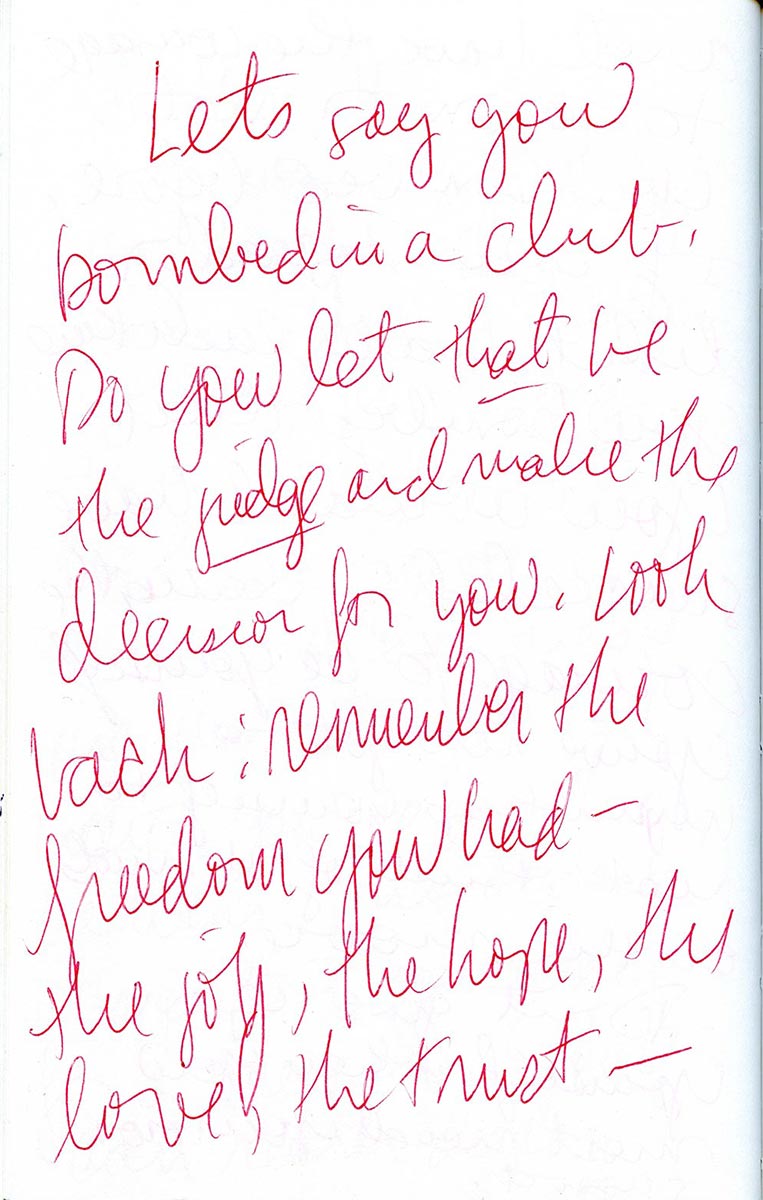 Lets say you
bombed in a club.
Do you let that be
the judge and make the
decision for you. Look
back : remember the
freedom you had —
the joy, the hope, the
love, the trust —